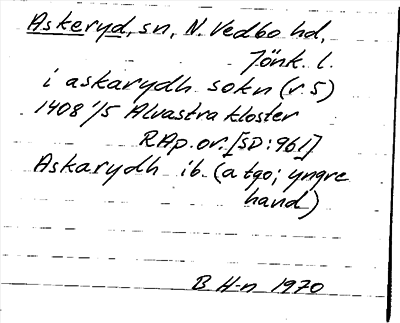 Askeryd, sn, N. Vedbo hd,
Jönk. l.
i askarydh sokn (r. 5)
1408 1/5 Alvastra kloster
RAp. or. [SD: 961]
Askarydh ib. (atgo; yngre
hand)
B H-n 1970